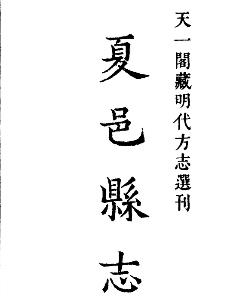 天一閣藏明代方志選刊
夏邑縣志